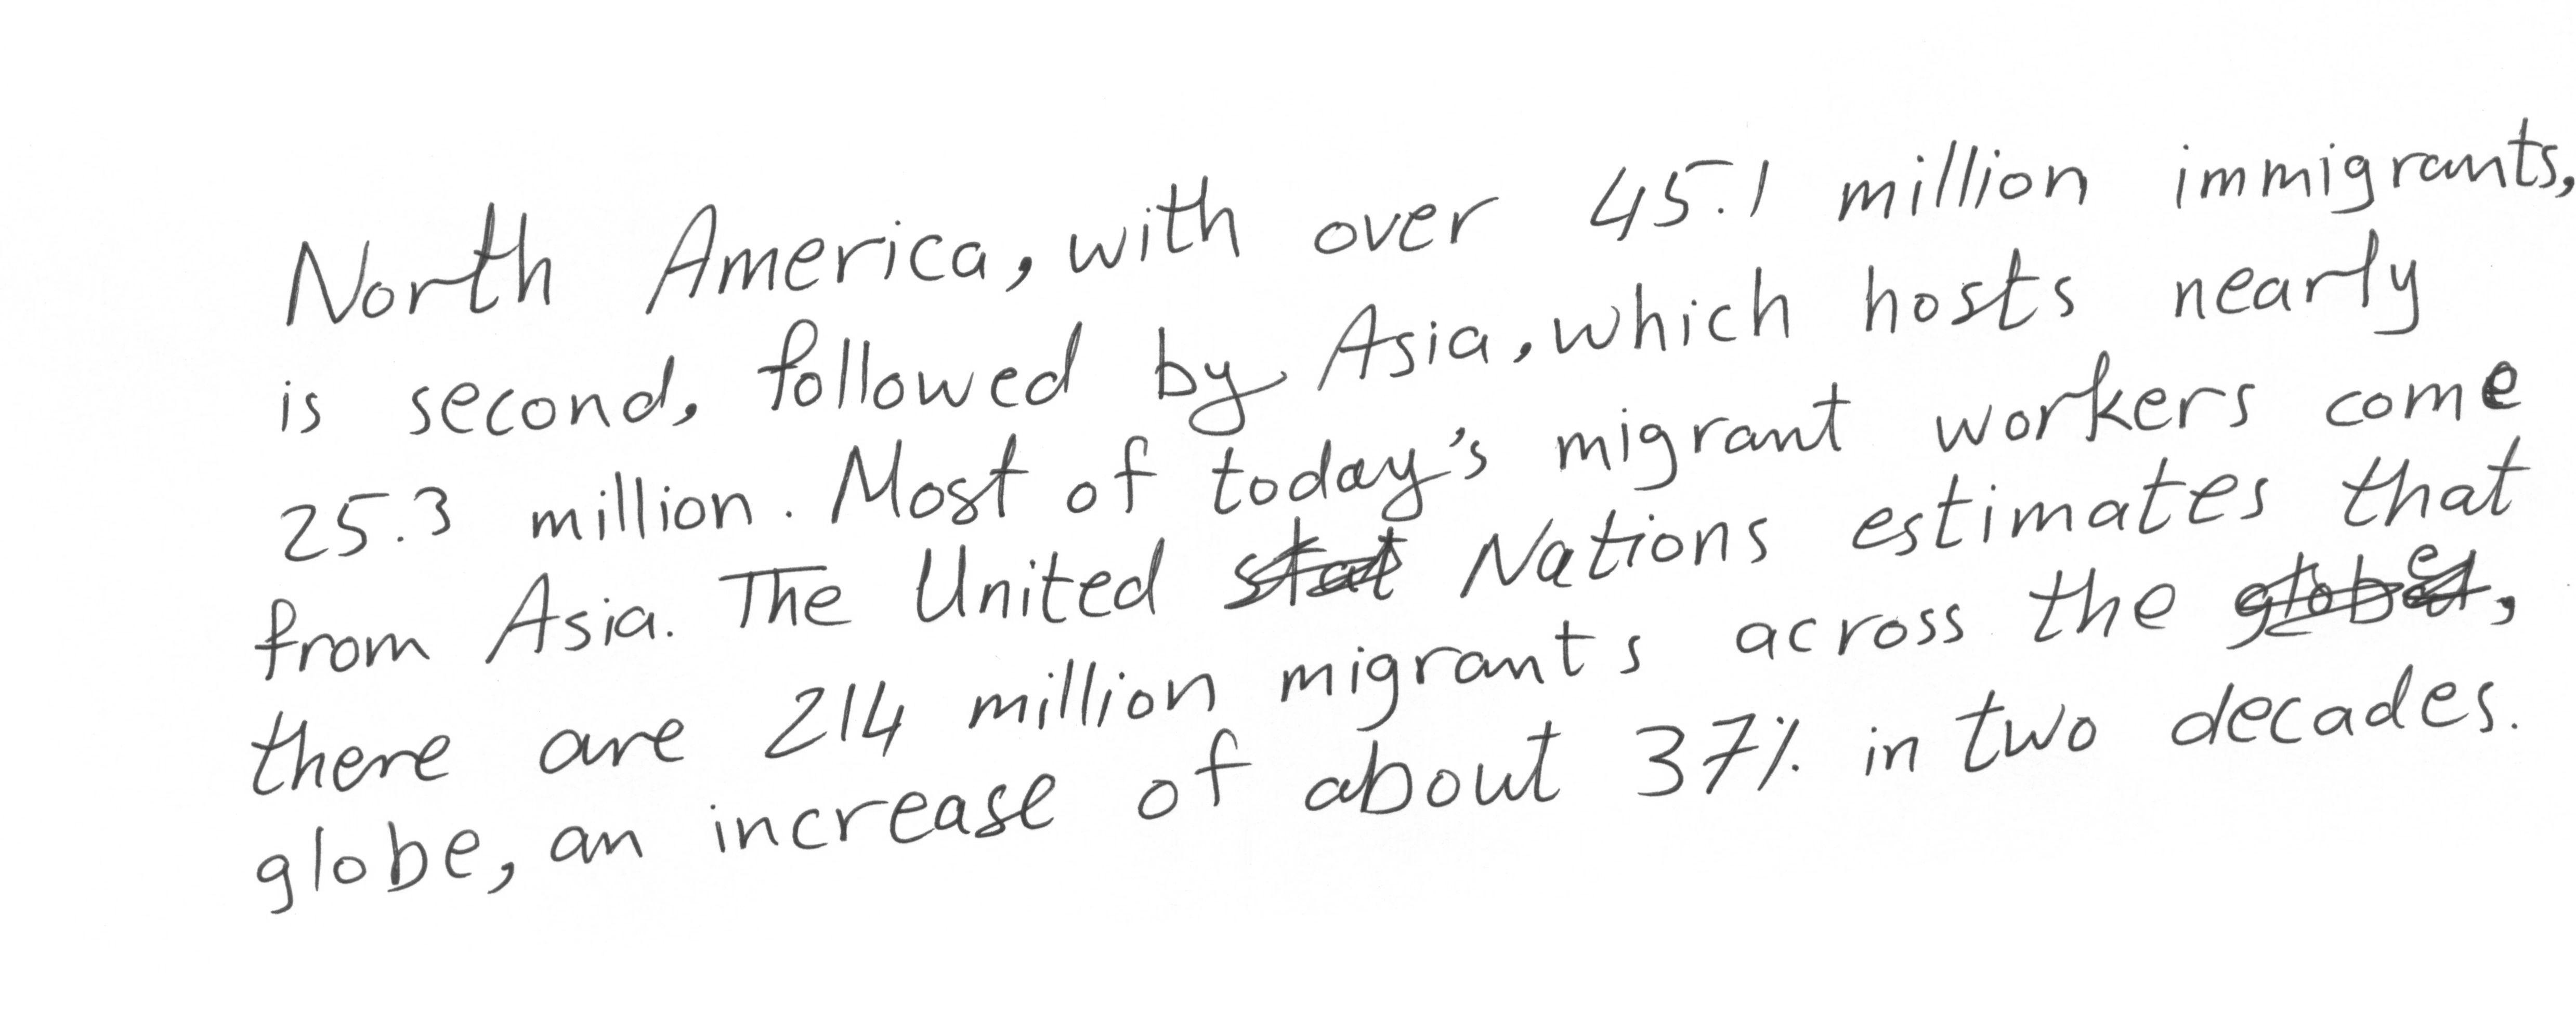 North America, with over 45.1 million immigrants,
is second, followed by Asia, which hosts nearly
25.3 million. Most of today's migrant workers come
from Asia. The United Nations estimates that
there are 214 million migrants across the
globe, an increase of about 37% in two decades.